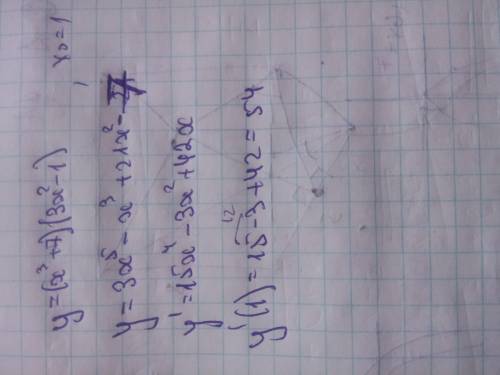 y=(x³+7)(3x²-1) , x₀=1
y=3x⁵-x³+21x²-7
y'=15x⁴-3x²+42x
y'(1)=15-3+42=54
12